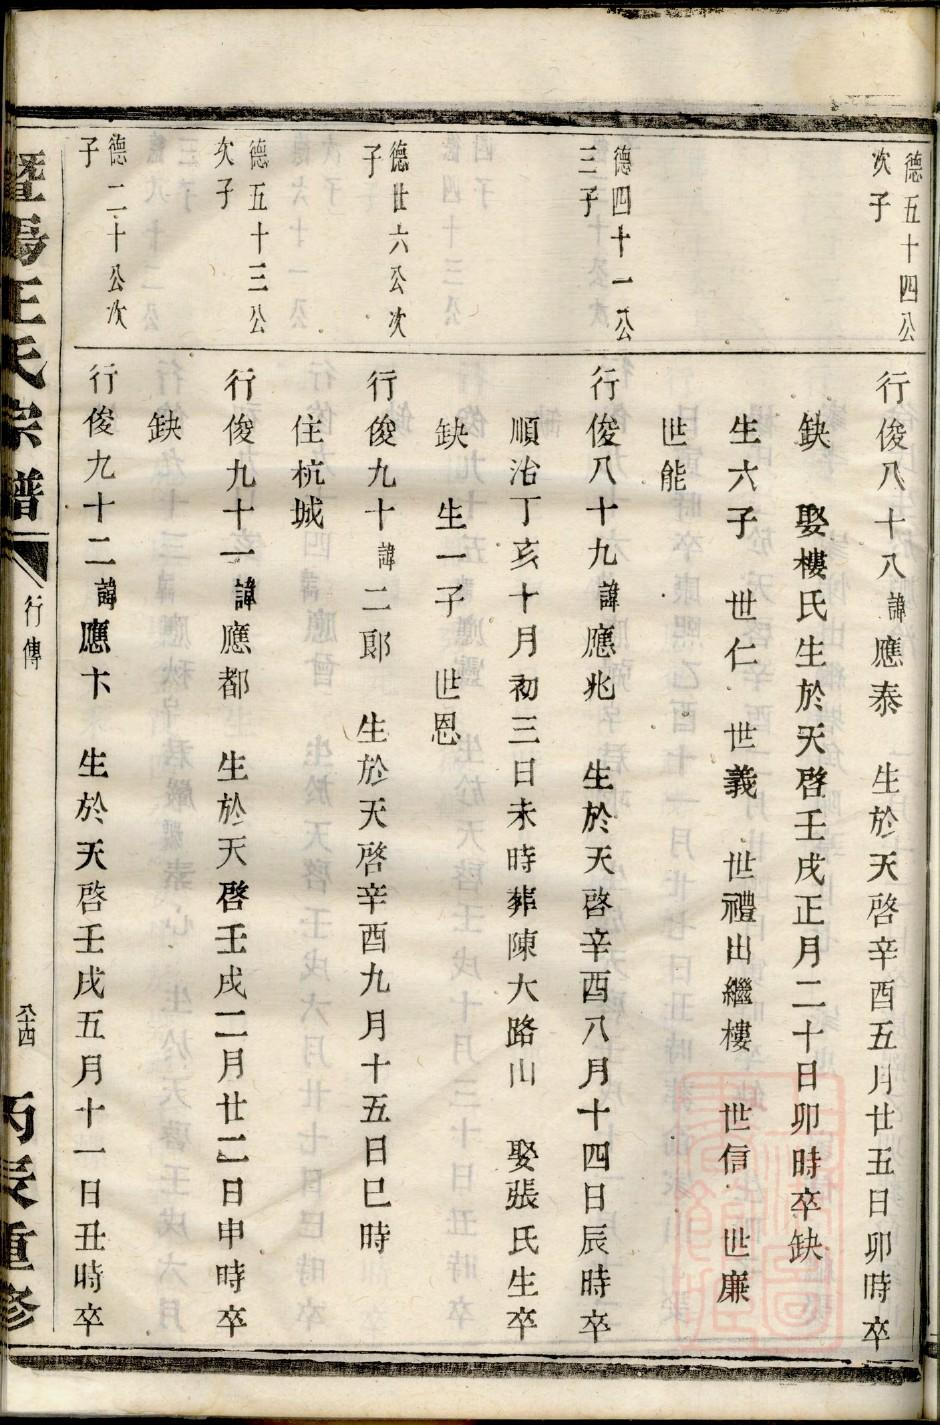 德五十四公
次子
行俊八十八諱應泰　生於天啓辛酉五月廿五日卯時卒
缺　娶樓氏生於天啓壬戌正月二十日卯時卒缺
生六子　世仁　世義　世禮出繼樓　世信　世廉
世能
德四十一公
三子
行俊八十九諱應兆　生於天啓辛酉八月十四日辰時卒
順治丁亥十月初三日未時葬陳大路山　娶張氏生卒
缺　生一子　世恩
德廿六公次
子
行俊九十諱二郎　生於天啓辛酉九月十五日巳時
住杭城
德五十三公
次子
行俊九十一諱應都　生於天啓壬戌二月廿二日申時卒
缺
德二十公次
子
行俊九十二諱應卞　生於天啓壬戌五月十一日丑時卒
暨陽王氏宗譜
行傳
丙辰重修